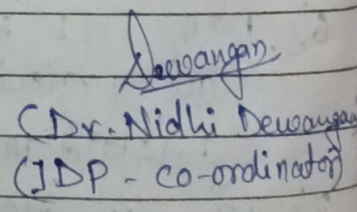 Dewangan
(Dr. Nidhi Dewangan
(IDP - co-ordinator)